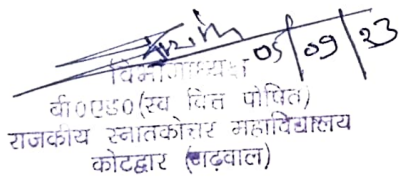 05/09/23
विभागाध्यक्ष
बी०एड० (स्व वित्त पोषित)
राजकीय स्नातकोत्तर महाविद्यालय
कोटद्वार (गढ़वाल)